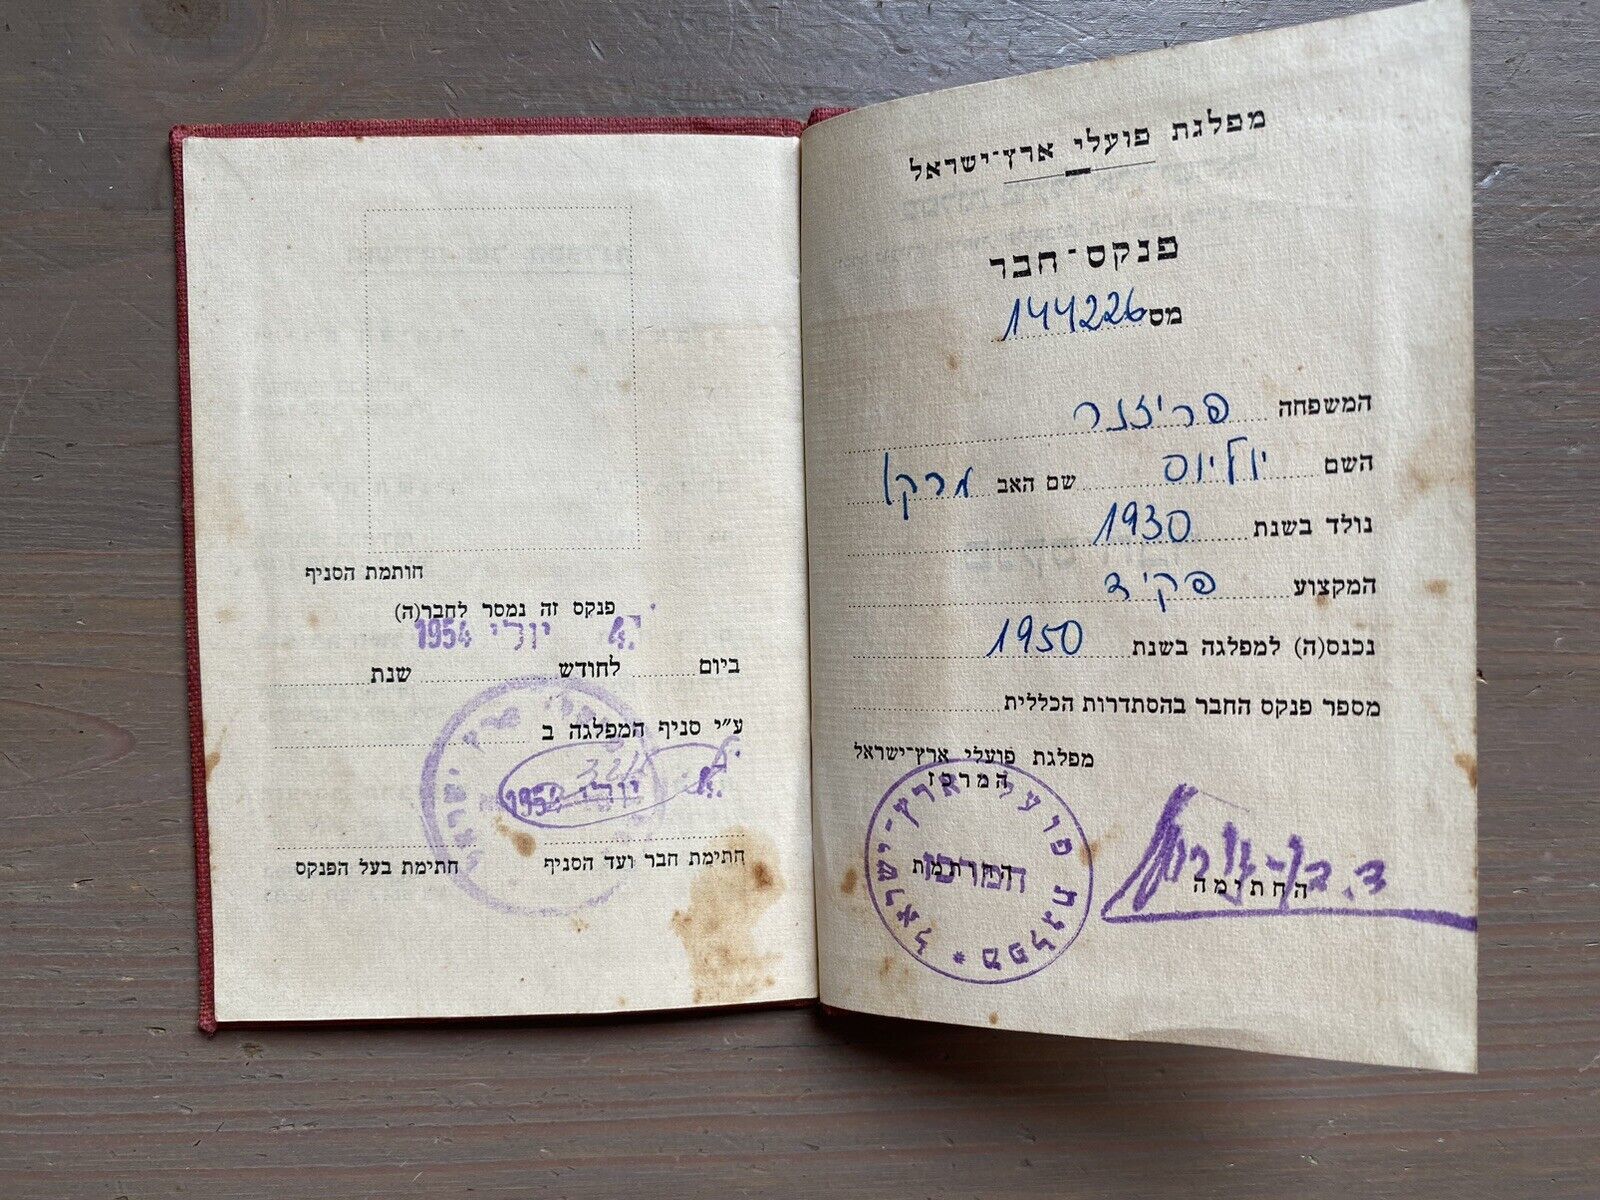 מפלגת פועלי ארץ־ישראל
פנקס־חבר
מס 144226
המשפחה פריזנר
השם יוליוס שם האב מרקו
נולד בשנת 1930
המקצוע פקיד
נכנס(ה) למפלגה בשנת 1950
מספר פנקס החבר בהסתדרות הכללית
מפלגת פועלי ארץ־ישראל
המרכז
החותמת
החתימה
מפלגת פועלי ארץ־ישראל *
המרכז
חותמת הסניף
פנקס זה נמסר לחבר(ה)
יולי 1954
ביום לחודש שנת
ע״י סניף המפלגה ב
יולי 1954
חתימת חבר ועד הסניף
חתימת בעל הפנקס